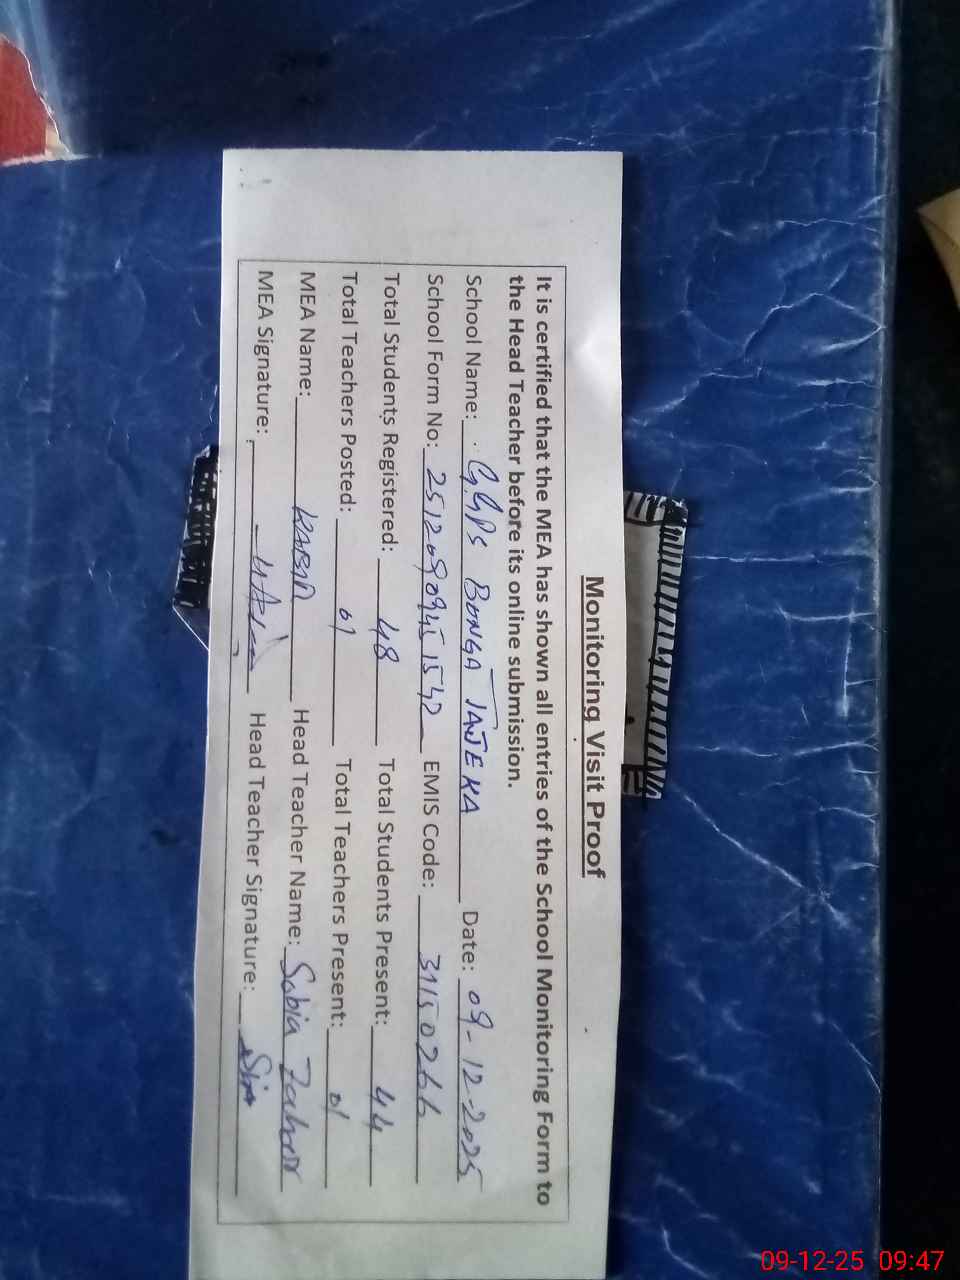 Monitoring Visit Proof
It is certified that the MEA has shown all entries of the School Monitoring Form to
the Head Teacher before its online submission.
School Name: G.GPS BONGA TAJEKA Date: 09-12-2025
School Form No: EMIS Code: 31150266
Total Students Registered: 48 Total Students Present: 44
Total Teachers Posted: 01 Total Teachers Present: 01
MEA Name: KABIR Head Teacher Name: Sabia
MEA Signature: Head Teacher Signature:
09-12-25 09:47